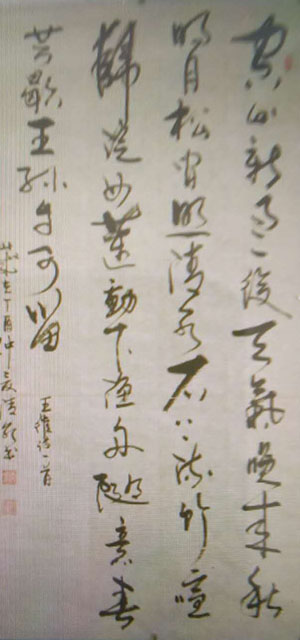 空山新雨後天氣晚來秋
明月松間照清泉石上流竹喧
歸浣女蓮動下漁舟隨意春
芳歇王孫自可留 王維詩一首
丁酉仲夏